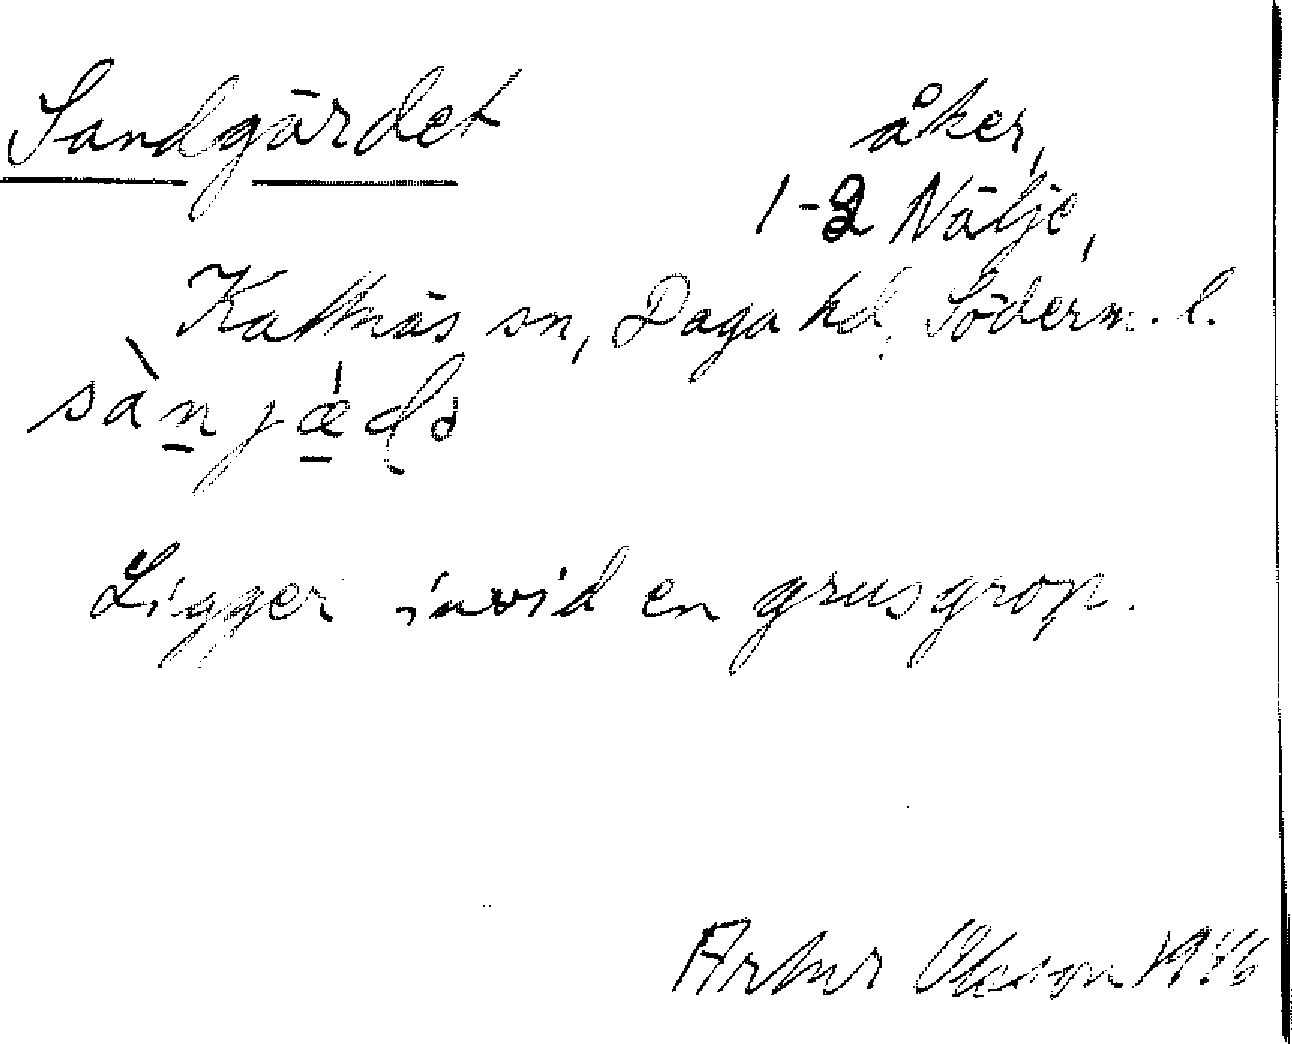 Sandgärdet åker,
1-2 Nälje,
Kattnäs sn, Daga hd, Söderm. l.
sànjǽdə
Ligger invid en grusgrop.
Artur Olsson 1946